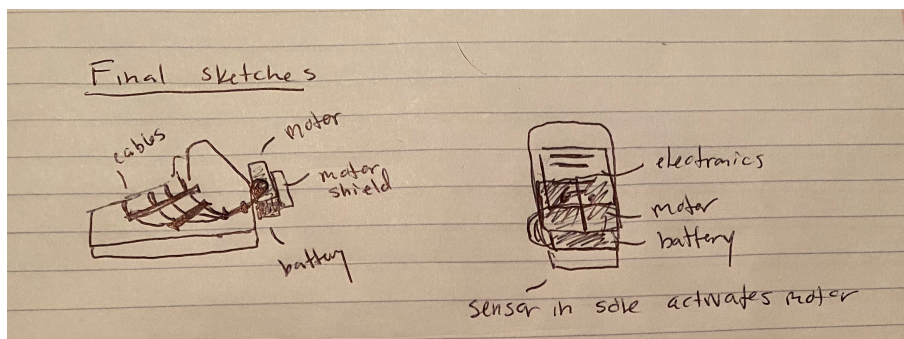 Final sketches
cables
motor
motor
shield
battery
electronics
motor
battery
sensor in sole activates motor